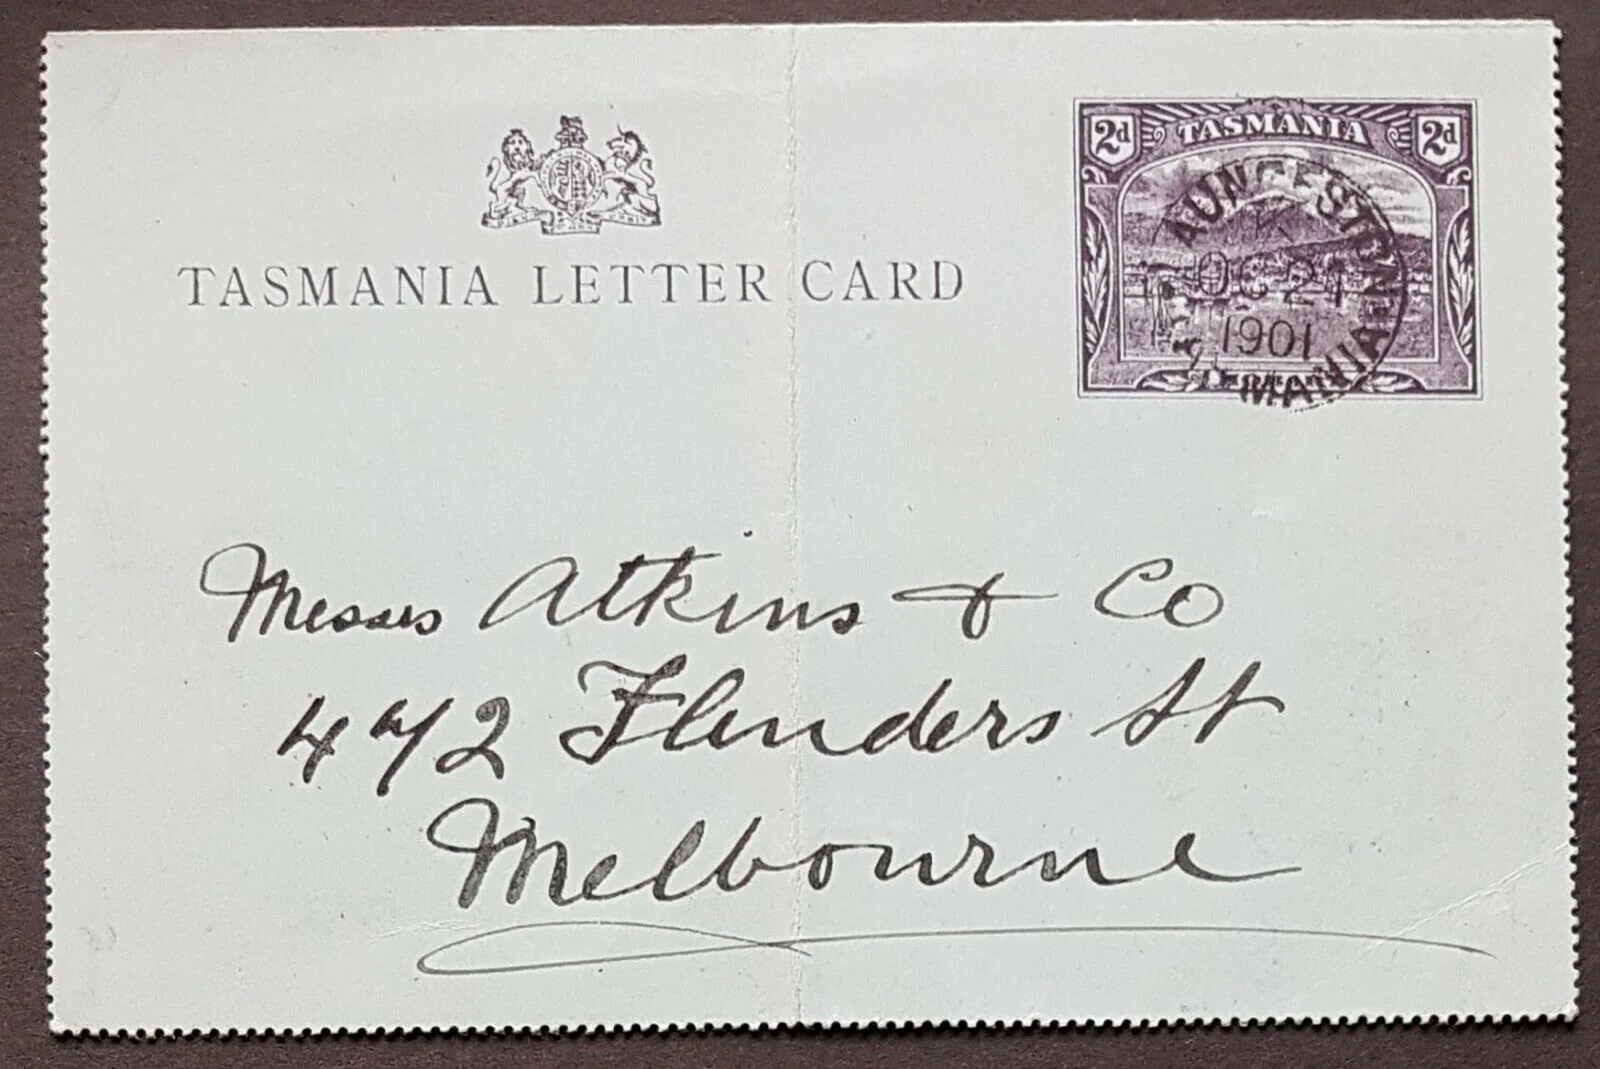 2d TASMANIA 2d
LAUNCESTON
OC 24
1901
TASMANIA
TASMANIA LETTER CARD
Messrs Atkins & Co
472 Flinders St
Melbourne